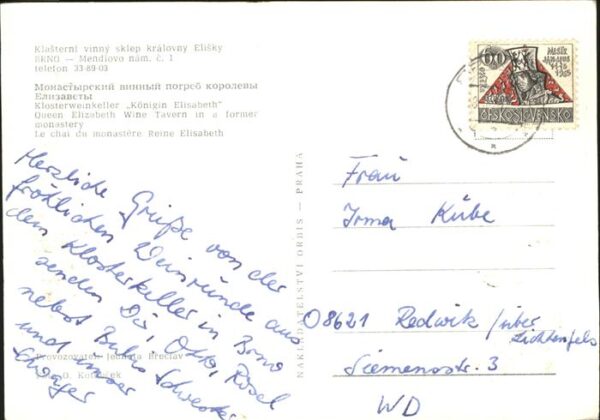 Klášterní vinný sklep královny Elišky
BRNO — Mendlovo nám. č. 1
telefon 33-89-03
Монастырский винный погреб королевы
Елизаветы
Klosterweinkeller „Königin Elisabeth“
Queen Elizabeth Wine Tavern in a former
monastery
Le chai du monastère Reine Elisabeth
Herzliche Grüße von der
fröhlichen Weinründe aus
dem Klosterkeller in Brno
senden Dir, Otto, Rosel
nebst Schwester
und unser
Schwager
Provozovatel: Jednota Břeclav
Foto O.
NAKLADATELSTVÍ ORBIS — PRAHA
60
ČESKOSLOVENSKO
Frau
Irma Kübe
08621 Redwitz / über
Lichtenfels
Siemensstr. 3
WD